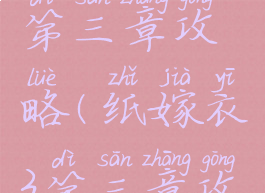 dì sān zhāng gōng
第三章攻
lüè zhǐ jià yī
略(纸嫁衣
dì sān zhāng gōng
3第三章攻